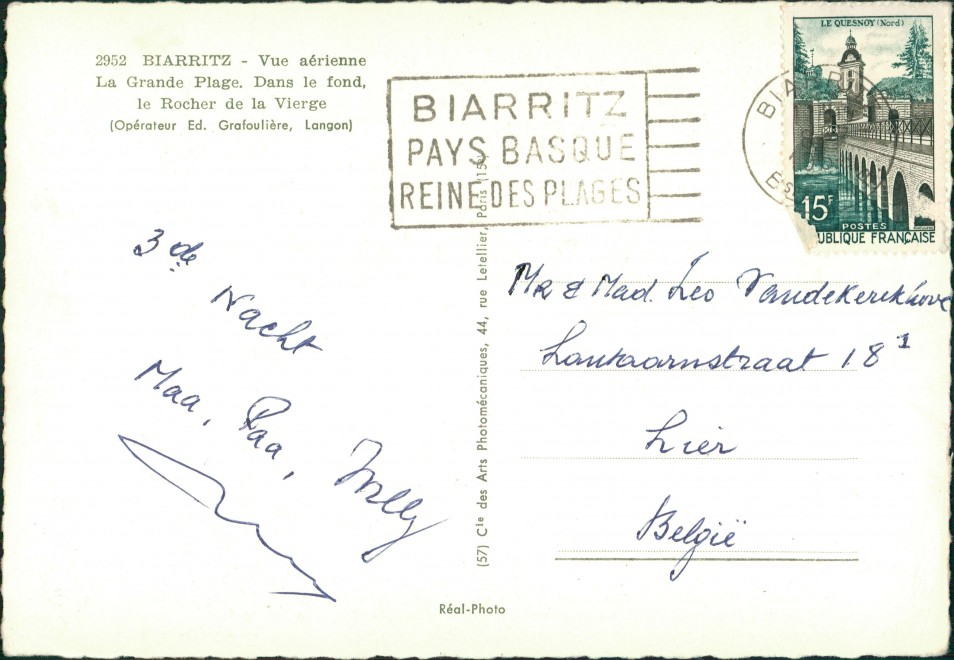 2952 BIARRITZ - Vue aérienne
La Grande Plage. Dans le fond,
le Rocher de la Vierge
(Opérateur Ed. Grafoulière, Langon)
BIARRITZ
PAYS BASQUE
REINE DES PLAGES
LE QUESNOY (Nord)
15F
POSTES
UBLIQUE FRANÇAISE
3de
Nacht
Maa, Paa, Willy
(57) Cie des Arts Photomécaniques, 44, rue Letellier, Paris (15
Mr & Mad. Leo Vandekerckhove
Lantaarnstraat 18 1
Lier
België
Réal-Photo